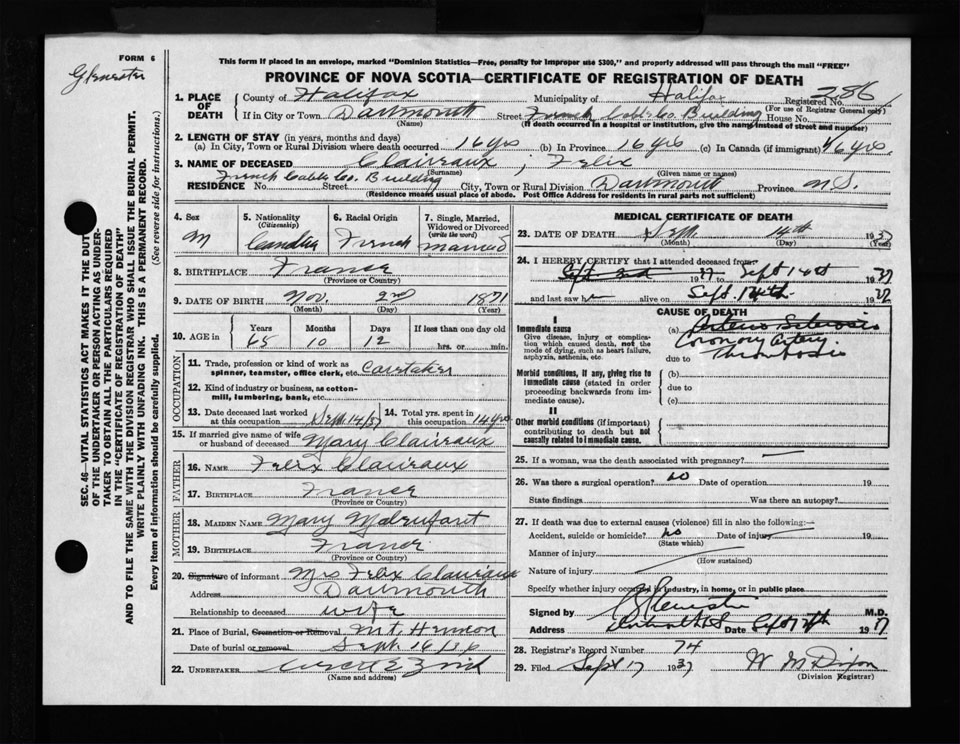 FORM 6
Glenister
This form if placed in an envelope, marked "Dominion Statistics—Free, penalty for improper use $300," and properly addressed will pass through the mail "FREE"
PROVINCE OF NOVA SCOTIA—CERTIFICATE OF REGISTRATION OF DEATH
286
1. PLACE OF DEATH
County of Halifax Municipality of Halifax Registered No.
(For use of Registrar General only)
If in City or Town Dartmouth Street French Cable Co. Building House No.
(Name) (If death occurred in a hospital or institution, give the name instead of street and number)
2. LENGTH OF STAY (in years, months and days)
(a) In City, Town or Rural Division where death occurred 16 yrs (b) In Province 16 yrs (c) In Canada (if immigrant) 46 yrs.
3. NAME OF DECEASED Claireaux, Felix
(Surname) (Given name or names)
French Cable Co. Building
RESIDENCE No. Street City, Town or Rural Division Dartmouth Province N.S.
(Residence means usual place of abode. Post Office Address for residents in rural parts not sufficient)
4. Sex
M
5. Nationality
(Citizenship)
6. Racial Origin
French
7. Single, Married, Widowed or Divorced
(write the word)
married
8. BIRTHPLACE France
(Province or Country)
9. DATE OF BIRTH Nov. 2nd 1871
(Month) (Day) (Year)
10. AGE in
Years Months Days If less than one day old
65 10 12 hrs. or min.
OCCUPATION
11. Trade, profession or kind of work as
spinner, teamster, office clerk, etc. Caretaker
12. Kind of industry or business, as cotton-
mill, lumbering, bank, etc.
13. Date deceased last worked
at this occupation Sept. 14/37
14. Total yrs. spent in
this occupation 14 yrs
15. If married give name of wife
or husband of deceased Mary Claireaux
FATHER
16. NAME Felix Claireaux
17. BIRTHPLACE France
(Province or Country)
MOTHER
18. MAIDEN NAME Mary
19. BIRTHPLACE France
(Province or Country)
20. Signature of informant Mrs Felix Claireaux
Address Dartmouth
Relationship to deceased wife
21. Place of Burial, Cremation or Removal Mt. Hermon
Date of burial or removal Sept. 16
22. UNDERTAKER Zink
(Name and address)
MEDICAL CERTIFICATE OF DEATH
23. DATE OF DEATH Sept. 14th 1937
(Month) (Day) (Year)
24. I HEREBY CERTIFY that I attended deceased from:
Sept 2nd 1937 to Sept 14th 1937
and last saw h alive on Sept. 14th 1937
CAUSE OF DEATH
I
Immediate cause
Give disease, injury or complica-
tion which caused death, not the
mode of dying, such as heart failure,
asphyxia, asthenia, etc.
(a) Arterio Sclerosis
Coronary Artery
due to Thrombosis
Morbid conditions, if any, giving rise to
immediate cause (stated in order
proceeding backwards from im-
mediate cause).
(b)
due to
(c)
II
Other morbid conditions (if important)
contributing to death but not
causally related to immediate cause.
25. If a woman, was the death associated with pregnancy? —
26. Was there a surgical operation? no Date of operation 19
State findings Was there an autopsy?
27. If death was due to external causes (violence) fill in also the following:—
Accident, suicide or homicide? no Date of injury 19
(State which)
Manner of injury
(How sustained)
Nature of injury
Specify whether injury occurred in industry, in home, or in public place
Signed by Glenister M.D.
Address Date Sept 1937
28. Registrar's Record Number 74
29. Filed Sept 17 1937 W. M. Dixon
(Division Registrar)
SEC. 46—VITAL STATISTICS ACT MAKES IT THE DUTY
OF THE UNDERTAKER OR PERSON ACTING AS UNDER-
TAKER TO OBTAIN ALL THE PARTICULARS REQUIRED
IN THE "CERTIFICATE OF REGISTRATION OF DEATH"
AND TO FILE THE SAME WITH THE DIVISION REGISTRAR WHO SHALL ISSUE THE BURIAL PERMIT.
WRITE PLAINLY WITH UNFADING INK. THIS IS A PERMANENT RECORD.
Every item of information should be carefully supplied. (See reverse side for instructions.)